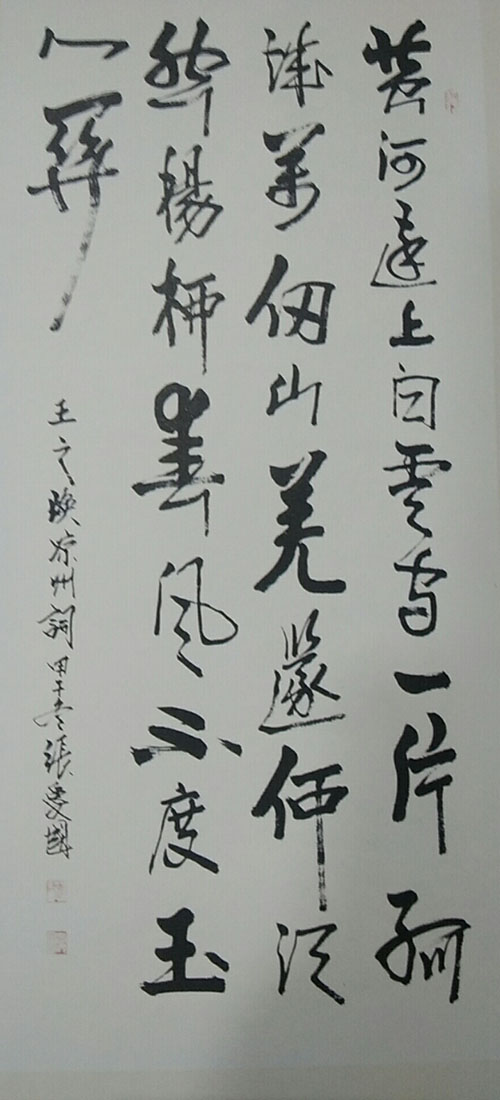 黄河遠上白雲間一片孤
城萬仞山羌篴何須
怨楊柳春風不度玉
門關
王之渙凉州詞甲午冬張愛國